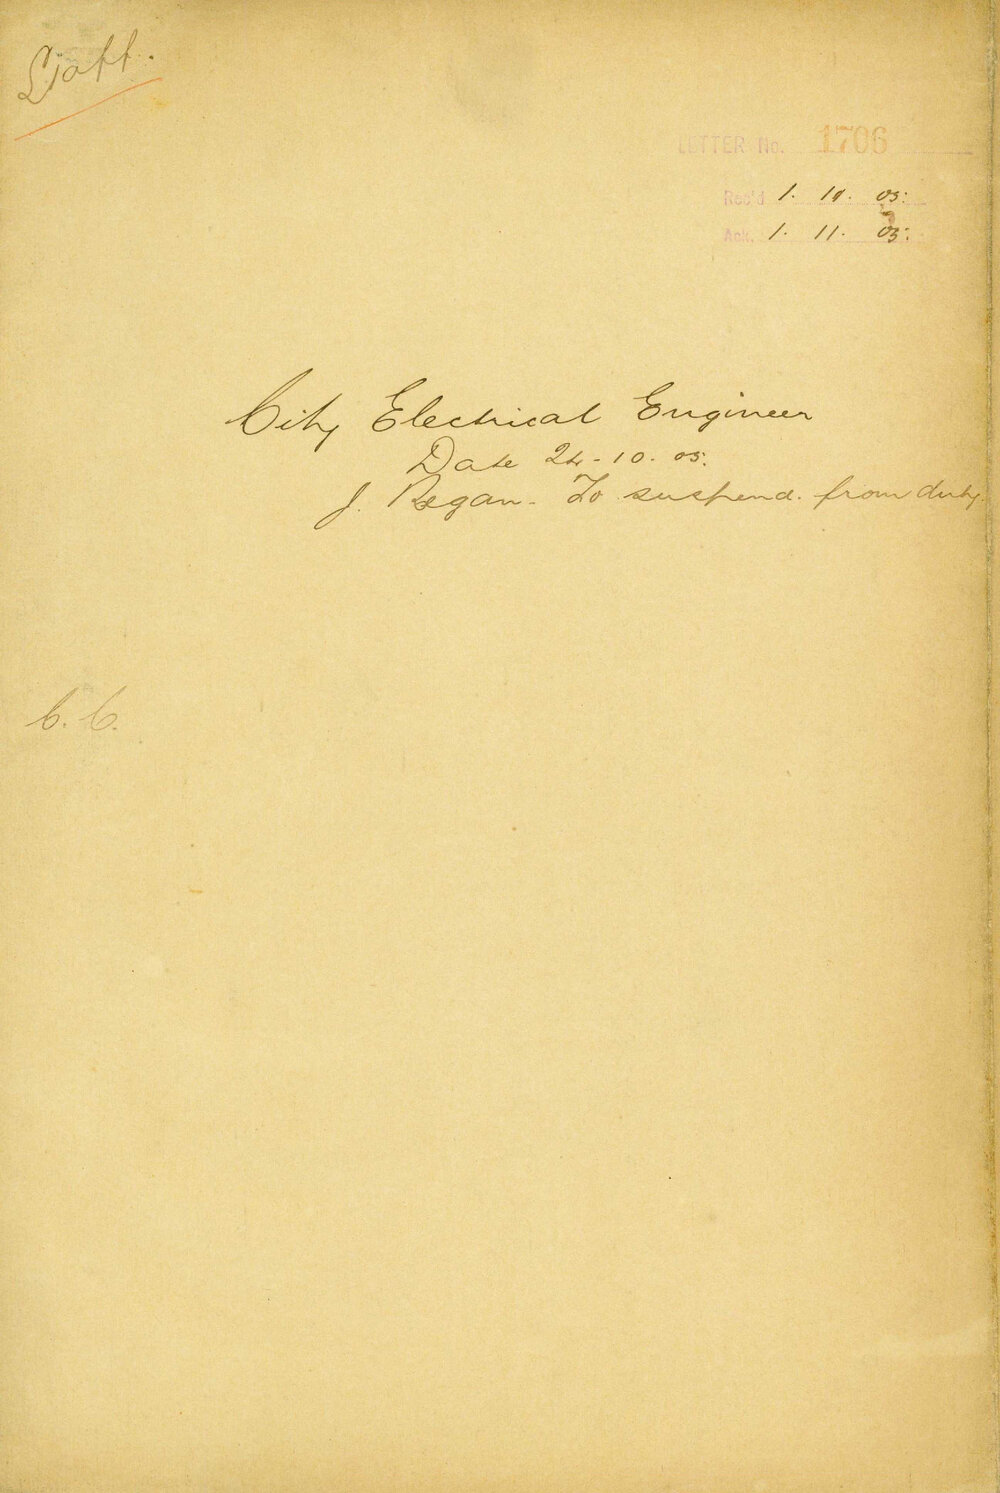 LETTER No. 1706
Rec'd 1. 10. 05.
Ack. 1. 11. 05.
City Electrical Engineer
Date 24-10-05.
J. Regan - To suspend. from duty.
C. C.